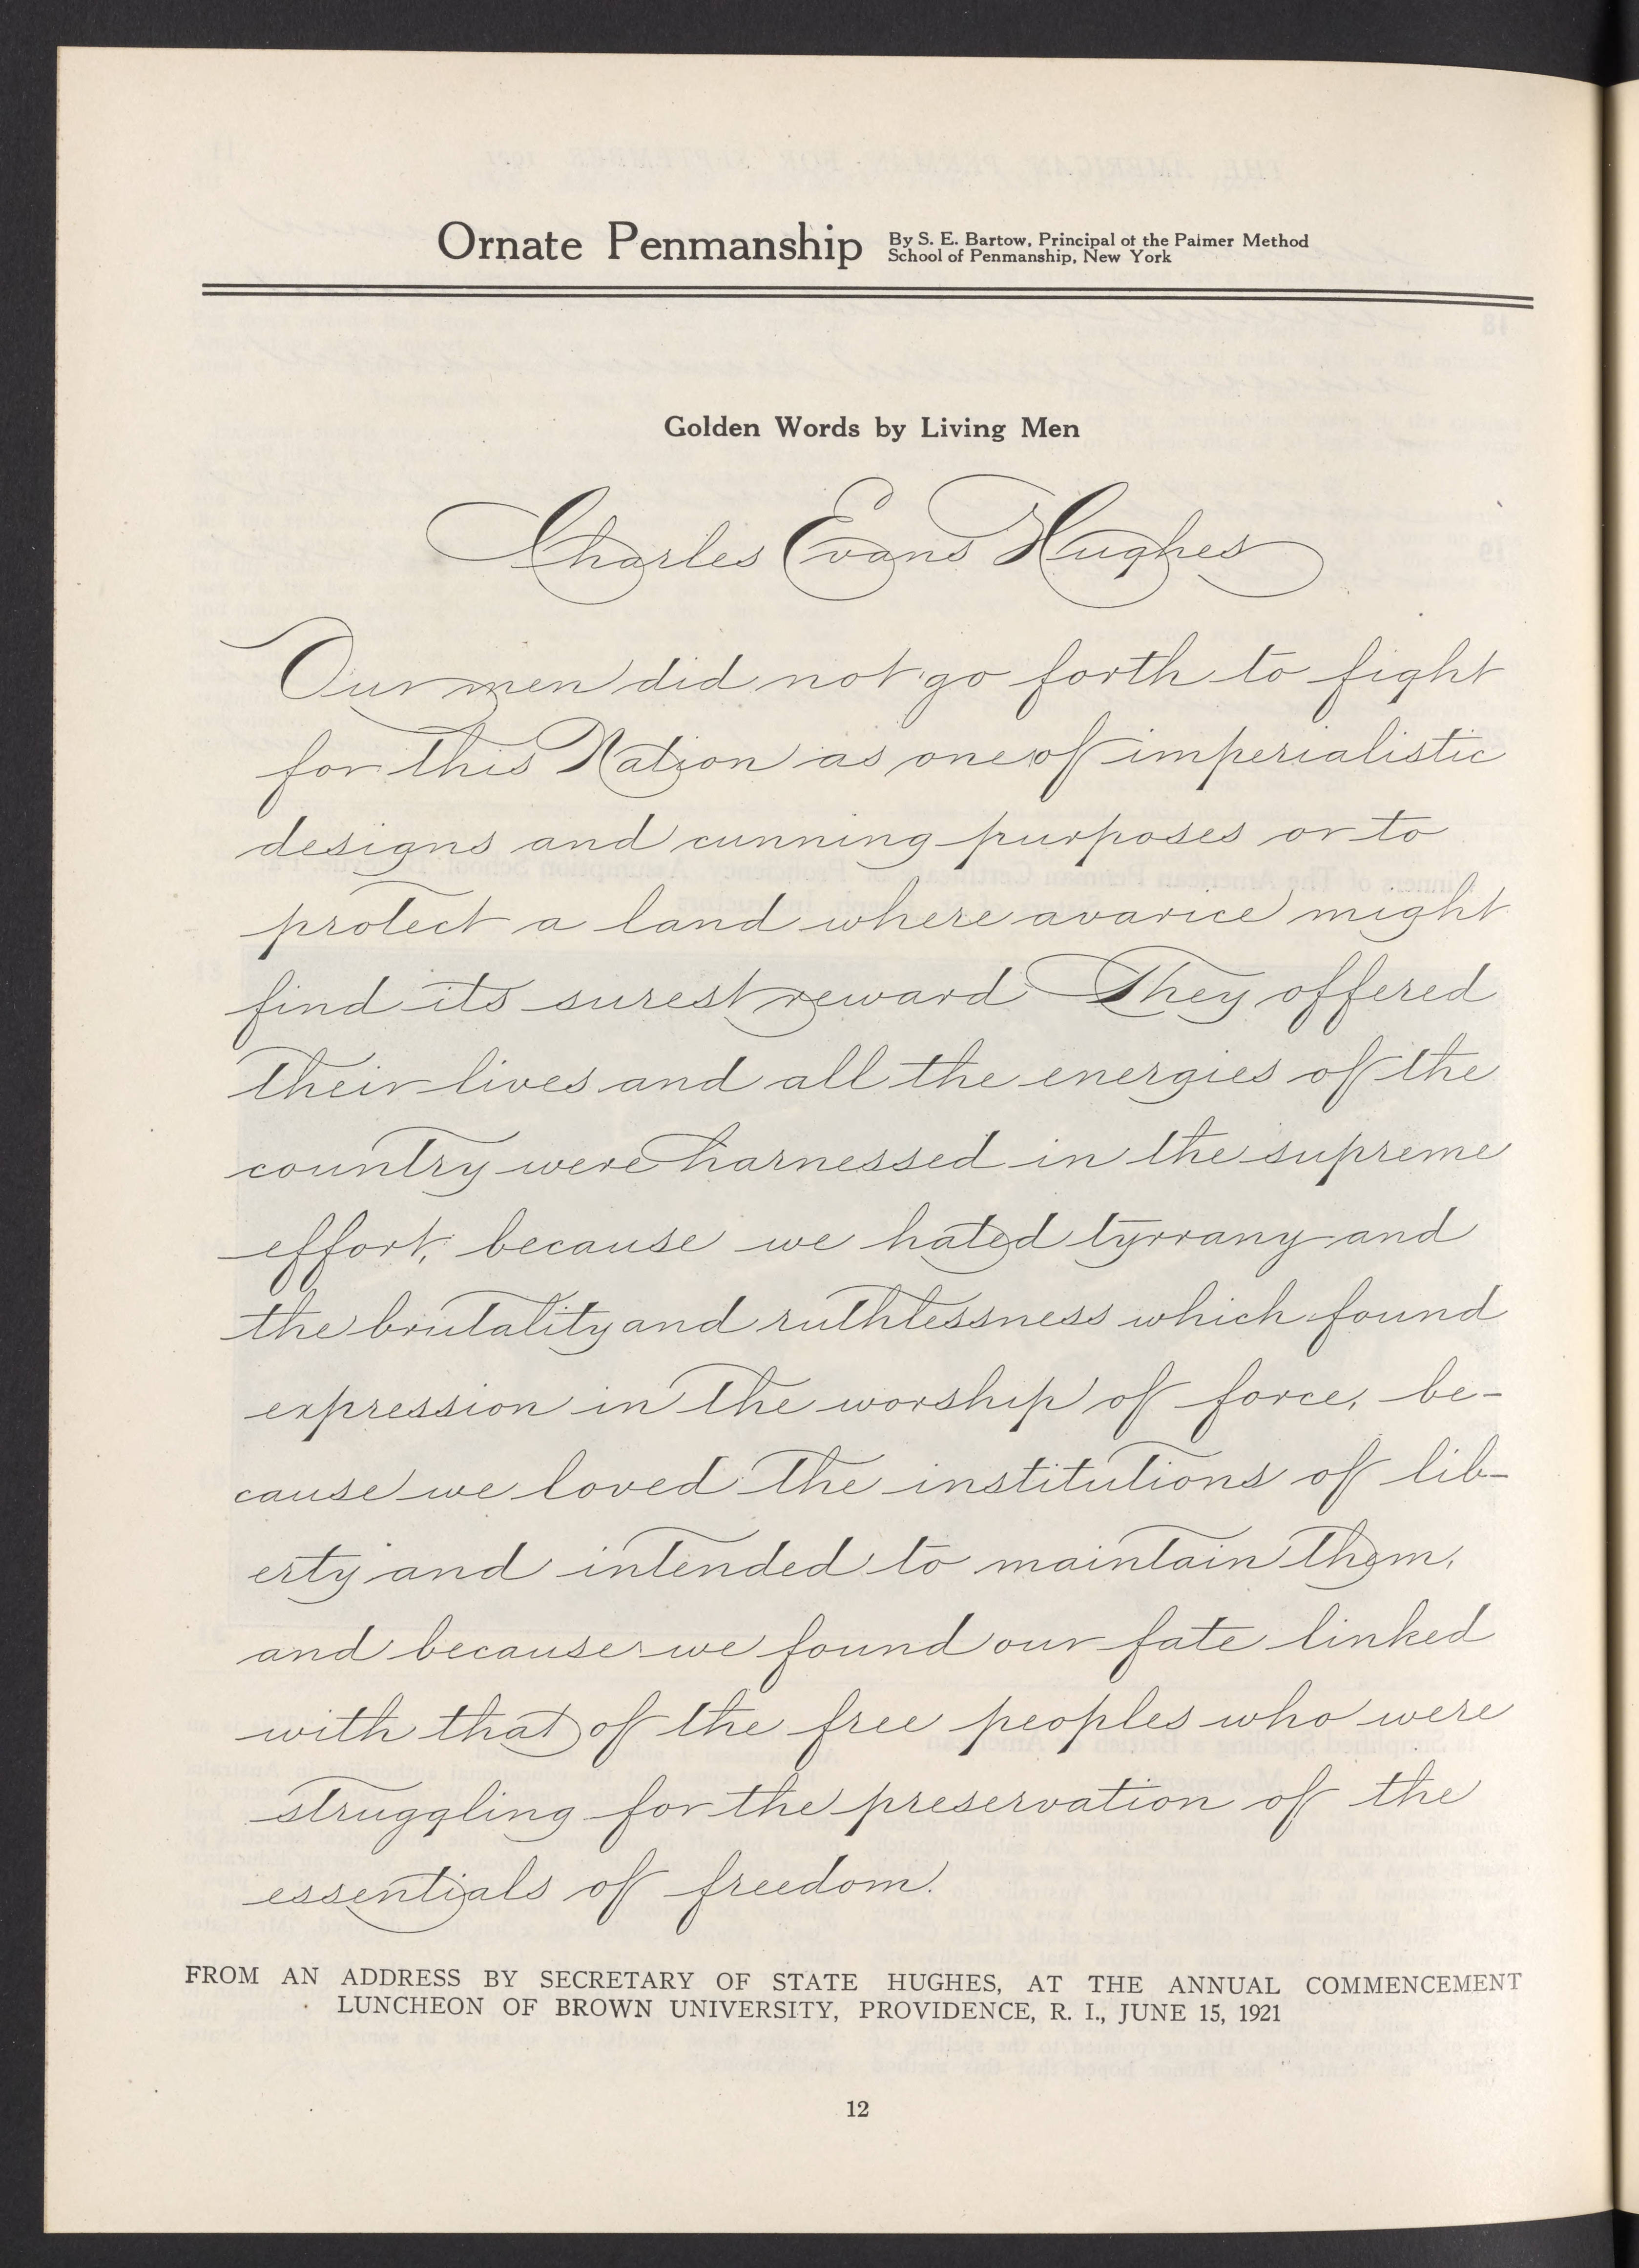 Ornate Penmanship
By S. E. Bartow, Principal of the Palmer Method
School of Penmanship, New York
Golden Words by Living Men
Charles Evans Hughes
Our men did not go forth to fight
for this Nation as one of imperialistic
designs and cunning purposes or to
protect a land where avarice might
find its surest reward They offered
their lives and all the energies of the
country were harnessed in the supreme
effort, because we hated tyrrany and
the brutality and ruthlessness which found
expression in the worship of force, be-
cause we loved the institutions of lib-
erty and intended to maintain them,
and because we found our fate linked
with that of the free peoples who were
struggling for the preservation of the
essentials of freedom.
FROM AN ADDRESS BY SECRETARY OF STATE HUGHES, AT THE ANNUAL COMMENCEMENT
LUNCHEON OF BROWN UNIVERSITY, PROVIDENCE, R. I., JUNE 15, 1921
12